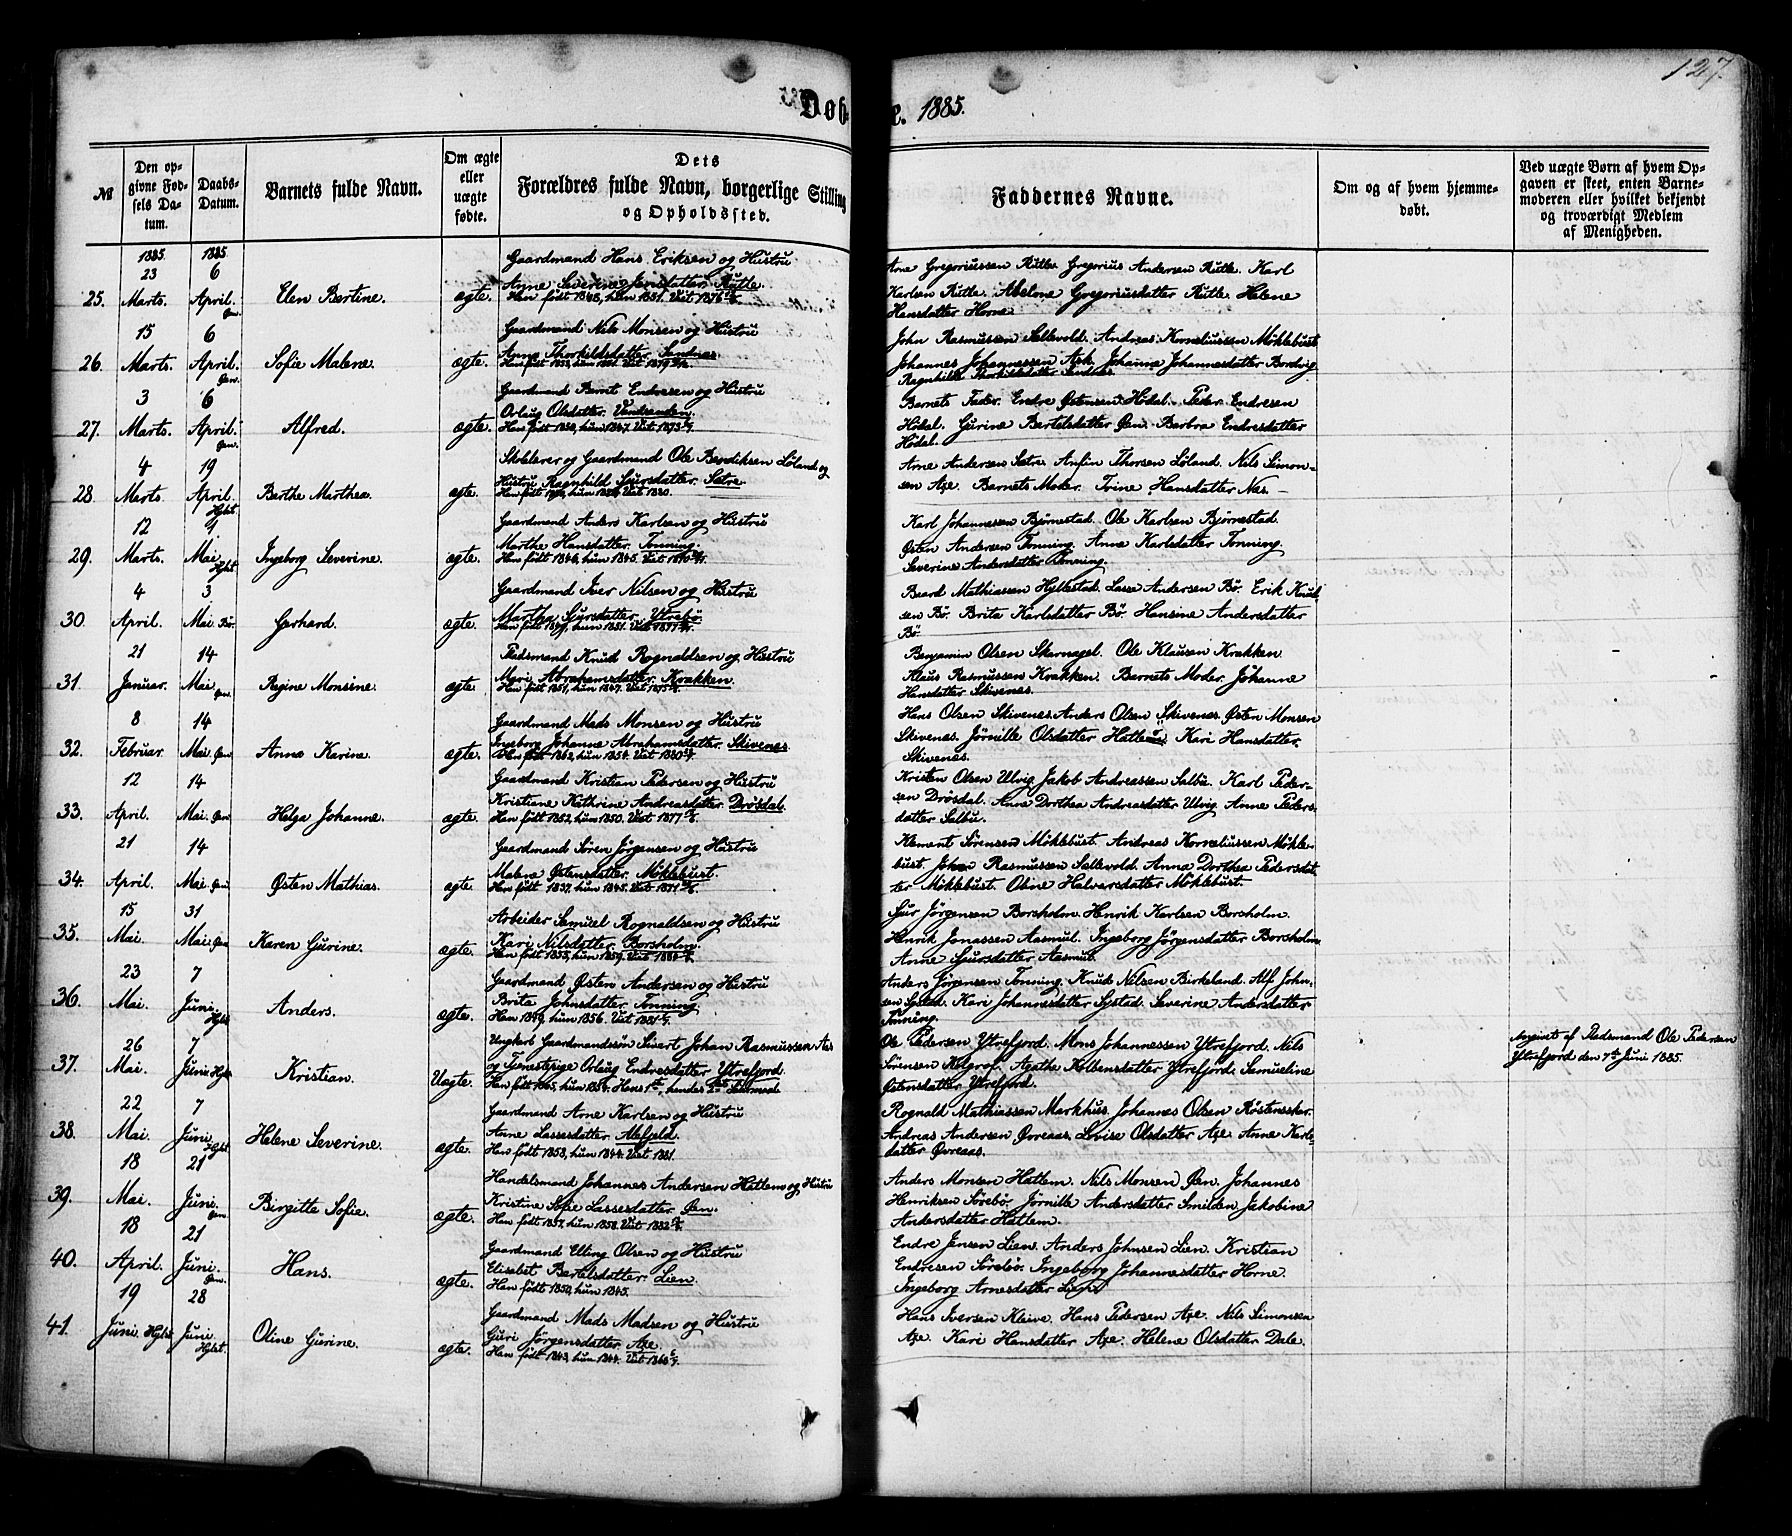 127.
Døbte. 1885.
№
Den opgivne Fødsels Datum.
Daabs-Datum.
Barnets fulde Navn.
Om ægte eller uægte fødte.
Dets Forældres fulde Navn, borgerlige Stilling og Opholdssted.
Faddernes Navne.
Om og af hvem hjemmedøbt.
Ved uægte Børn af hvem Opgaven er skeet, enten Barnemoderen eller hvilket bekjendt og troværdigt Medlem af Menigheden.
1885. 1885.
25. 23 Marts. 6 April. Øen. Elen Bertine. ægte.
Gaardmand Hans Eriksen og Hustru
Anne Severine Jensdatter Rutle.
Han født 1848, hun 1851. Viet 1876
Arne Gregoriussen Rutle. Gregorius Andersen Rutle. Karl
Karlsen Rutle. Abelone Gregoriusdatter Rutle. Helene
Hansdatter Horne
26. 15 Marts. 6 April. Øen. Sofie Malene. ægte.
Gaardmand Nils Monsen og Hustru
Anne Thorkildsdatter Sandnes
John Rasmussen Sallevold. Andreas Korneliussen Møklebust
Johannes Johannessen Ask. Johanne Johannesdatter Bordvig
Ragnhilde Thorkildsdatter Sandnes.
27. 3 Marts. 6 April. Øen. Alfred. ægte.
Gaardmand Bernt Endresen og Hustru
Orlaug Olsdatter.
Han født 1850, hun 1847. Viet 1873
Barnets Fader. Endre Østensen Hødal. Peder Endresen
Hödal. Gurine Bertelsdatter Øen. Barbra Endresdatter
Hödal.
28. 4 Marts. 19 April. Hylst. Berthe Marthea. ægte.
Skolelærer og Gaardmand Ole Bendiksen Løland og
Hustru Ragnhild Sjursdatter. Sætre.
Arne Andersen Sætre. Anfin Thorsen Løland. Nils Simon-
sen Axe. Barnets Moder. Trine Hansdatter Nes.
29. 12 Marts. Mai. Hylst. Ingeborg Severine. ægte.
Gaardmand Anders Karlsen og Hustru
Marthe Hansdatter. Tonning.
Han født 1846, hun 1845. Viet 1870
Karl Johannesen Bjørnestad. Ole Karlsen Bjørnestad.
Østen Andersen Tonning. Anne Karlsdatter Tonning.
Severine Andersdatter Tonning.
30. 4 April. 3 Mai. Bø. Gerhard. ægte.
Gaardmand Iver Nilsen og Hustru
Marthe Sjursdatter. Ytrebø.
Beard Mathiassen Hyllestad. Lasse Andersen Bø. Erik Knud-
sen Bø. Brita Karlsdatter Bø. Hansine Andersdatter
Bø.
31. 21 Januar. 14 Mai. Øen Regine Monsine. ægte.
Pladsmand Knud Rognaldsen og Hustru
Mari Abrahamsdatter. Krakken.
Han født 1851, hun 1847. Viet 1875
Benjamin Olsen Skarnagel. Ole Klausen Krakken.
Klaus Rasmussen Krakken. Barnets Moder. Johanne
Hansdatter Skivenes.
32. 8 Februar. 14 Mai. Øen Anna Karine. ægte.
Gaardmand Mads Monsen og Hustru
Ingeborg Johanne Abrahamsdatter. Skivenes.
Han født 1852, hun 1854. Viet 1880
Hans Olsen Skivenes. Anders Olsen Skivenes. Østen Monsen
Skivenes. Jørnille Olsdatter Hatlem. Kari Hansdatter
Skivenes.
33. 12 April. 14 Mai. Øen Helga Johanne. ægte.
Gaardmand Kristian Pedersen og Hustru
Kristiane Kathrine Andreasdatter Drøsdal.
Han født 1852, hun 1850. Viet 1877
Kristen Olsen Ulvig. Jakob Andreassen Salbu. Karl Peder-
sen Drösdal. Anne Dorthea Andreasdatter Ulvig. Anne Peders-
datter Salbu.
34. 21 April. 14 Mai. Øen Østen Mathias. ægte.
Gaardmand Søren Jørgensen og Hustru
Malene Østensdatter. Møklebust.
Han født 1837, hun 1845. Viet 1871
Klement Sørensen Møklebust. Andreas Korneliussen Møkle-
bust. Johan Rasmussen Sallevold. Anne Dorthea Pedersdat-
ter Møklebust. Oline Halvarsdatter Møklebust.
35. 15 Mai. 31 Mai. Øen Karen Gurine. ægte.
Arbeider Samuel Rognaldsen og Hustru
Kari Nilsdatter Borsholm.
Sjur Jørgensen Borsholm. Henrik Karlsen Borsholm.
Henrik Jonassen Aasmul. Ingeborg Jørgensdatter Borsholm.
Anne Sjursdatter Aasmul.
36. 23 Mai. 7 Juni. Hylst. Anders. ægte.
Gaardmand Østen Andersen og Hustru
Brita Johnsdatter. Tonning.
Han 1849, hun 1856. Viet 1881
Anders Jørgensen Tonning. Knud Nilsen Birkeland. Alf John-
sen Systad. Kari Johannesdatter Systad. Severine Andersdatter
Tonning.
37. 26 Mai. 7 Juni Hylst. Kristian. Uægte.
Ungkarl Gaardmandssøn Sivart Johan Rasmussen Aas
og Tjenestpige Orlaug Endresdatter Ytrefjord.
Ole Pedersen Ytrefjord. Mons Johannessen Ytrefjord. Nils
Sørensen Kolgrof. Agathe Kolbensdatter Ytrefjord. Samueline
Østensdatter Ytrefjord.
Angivet af Pladsmand Ole Pedersen
Ytrefjord den 7de Juni 1885.
38. 22 Mai. 7 Juni. Hylst. Helene Severine. ægte.
Gaardmand Arne Karlsen og Hustru
Anne Lassesdatter Alefjeld.
Han født 1853, hun 1844. Viet 1881.
Rognald Mathiassen Markhus. Johannes Olsen Røstenesker.
Andreas Andersen Øvreaas. Lovise Olsdatter Axe. Anne Karls-
datter Øvreaas.
39. 18 Mai. 21 Juni. Øen. Birgitte Sofie. ægte.
Handelsmand Johannes Andersen Hatlem og Hustru
Kristine Sofie Lassesdatter Øen.
Han født 1857, hun 1858. Viet 1882
Anders Monsen Hatlem. Nils Monsen Øen. Johannes
Henriksen Sørebø. Jørnille Andersdatter Smilden. Jakobine
Andersdatter Hatlem.
40. 18 April. 21 Juni. Øen. Hans. ægte.
Gaardmand Elling Olsen og Hustru
Elisabet Bertelsdatter Lien.
Han født 1850, hun 1845.
Endre Jensen Lien. Anders Johnsen Lien. Kristian
Endresen Sørebø. Ingeborg Johannesdatter Horne.
Ingeborg Arnesdatter Lien.
41. 19 Juni. Hylst. 28 Juni. Hylst. Oline Gurine. ægte.
Gaardmand Mads Madsen og Hustru
Guri Jørgensdatter. Axe.
Han født 1843, hun 1844. Viet 1868
Hans Iversen Kleive. Hans Pedersen Axe. Nils Simonsen
Axe. Kari Hansdatter Axe. Helene Olsdatter Dale.